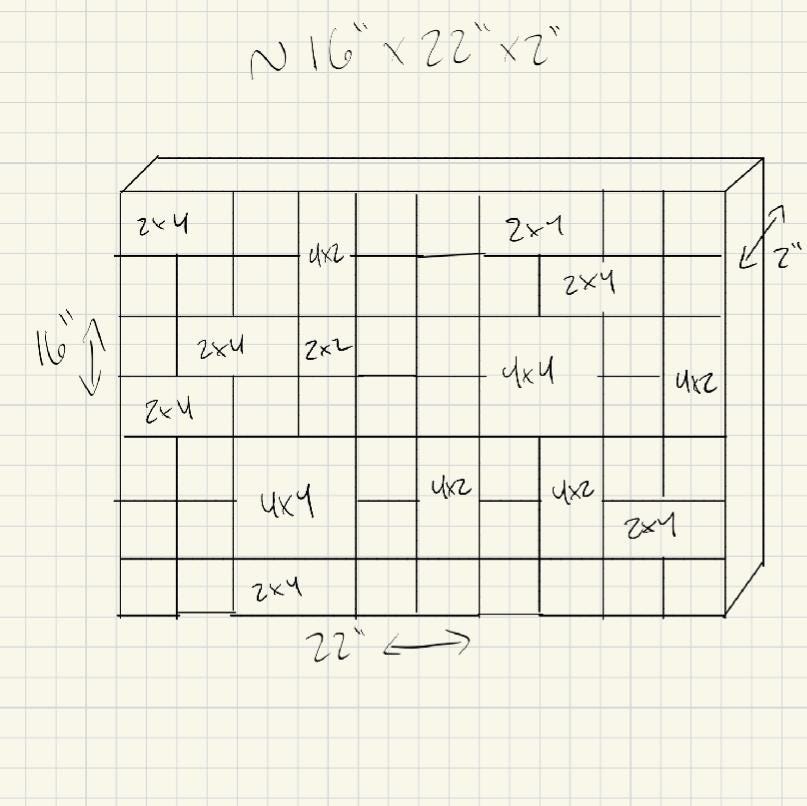 ~16" x 22" x 2"
2x4 2x4
4x2
2x4
2"
16"
2x4 2x2
4x4 4x2
2x4
4x4 4x2 4x2
2x4
2x4
22"